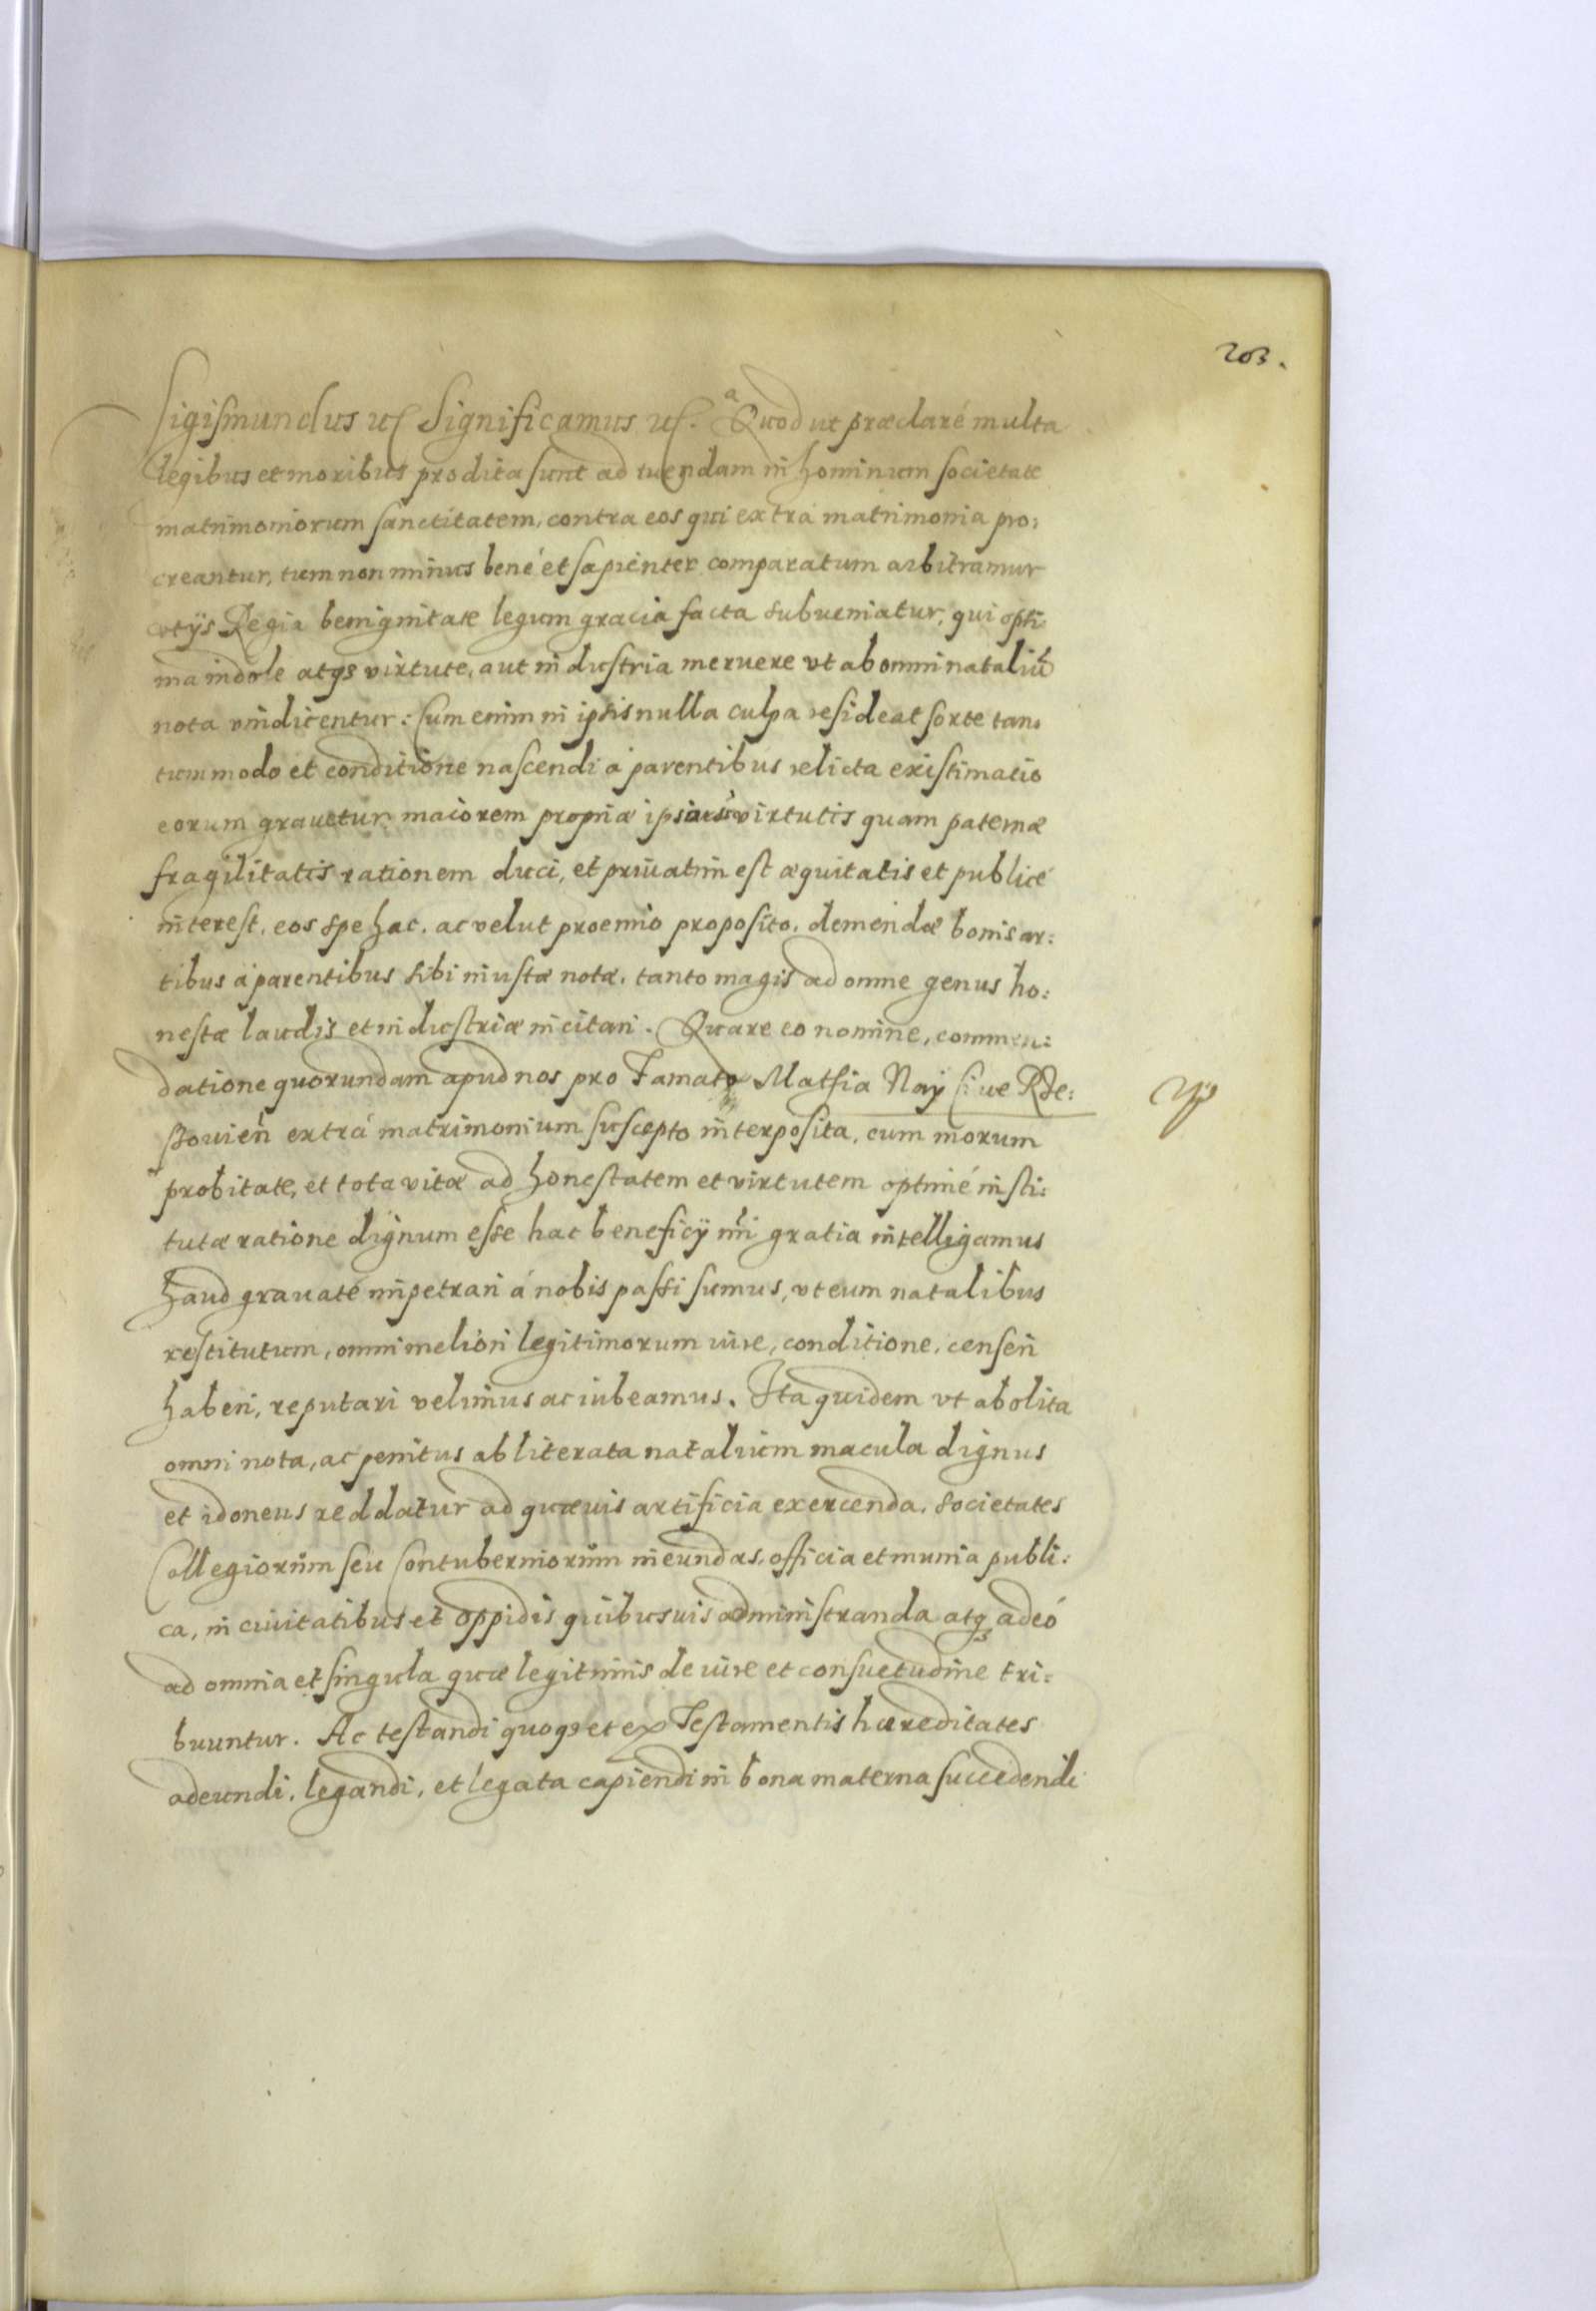 203.
Sigismundus etc Significamus etc. Quod ut præclaré multa
legibus et moribus prodita sunt ad tuendam in hominum societate
matrimoniorum sanctitatem, contra eos qui extra matrimonia pro:
creantur, tum non minus bené et sapienter comparatum arbitramur
vt ijs Regia benignitate legum gracia facta subueniatur, qui opti:
ma indole atqs virtute, aut industria meruere vt ab omni nataliū
nota vindicentur: Cum enim in ipsis nulla culpa resideat sorte tan:
tummodo et conditione nascendi á parentibus relicta existimatio
eorum grauetur maiorem propriæ ipsius virtutis quam paternæ
fragilitatis rationem duci, et priuatim est æquitatis et publicé
interest, eos spe hac, ac velut proemio proposito, demendæ bonis ar:
tibus á parentibus sibi iniustæ notæ, tanto magis ad omne genus ho:
nestæ laudis et industriæ incitari. Quare eo nomine, commen:
datione quorundam apud nos pro Famato Mathia Nay siue Rze:
szouien extrá matrimonium suscepto interposita, cum morum
probitate, et tota vitæ ad honestatem et virtutem optimé insti:
tutæ ratione dignum esse hac beneficij nri gratia intelligamus
haud grauaté impetrari á nobis passi sumus, vt eum natalibus
restitutum, omni meliori legitimorum iure, conditione, censeri
haberi, reputari velimus ac iubeamus. Ita quidem vt abolita
omni nota, ac penitus abliterata natalium macula dignus
et idoneus reddatur ad quæuis artificia exercenda, societates
Collegiorum seu Contuberniorum ineundas, officia et munia publi:
ca, in ciuitatibus et oppidis quibusuis administranda atqs adeó
ad omnia et singula quæ legitimis de iure et consuetudine tri:
buuntur. Ac testandi quoqs et ex Testamentis hæreditates
adeundi, legandi, et legata capiendi in bona materna succedendi